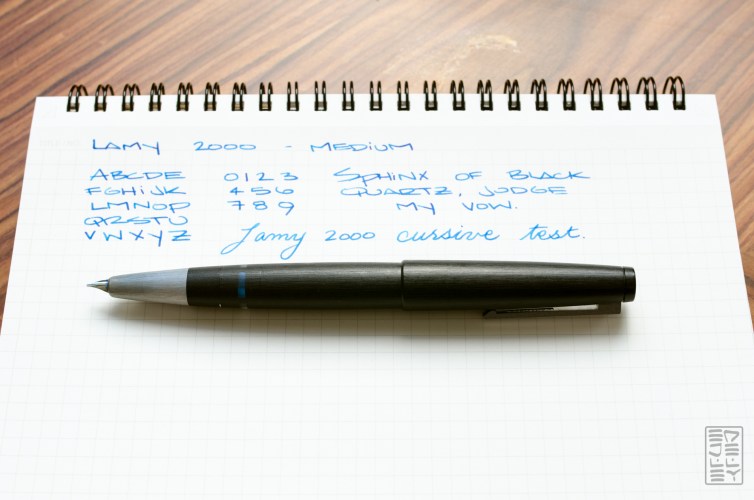 LAMY 2000 - MEDIUM
ABCDE 0123 SPHINX OF BLACK
FGHIJK 456 QUARTZ, JUDGE
LMNOP 789 MY VOW.
QRSTU
VWXYZ Lamy 2000 cursive test.